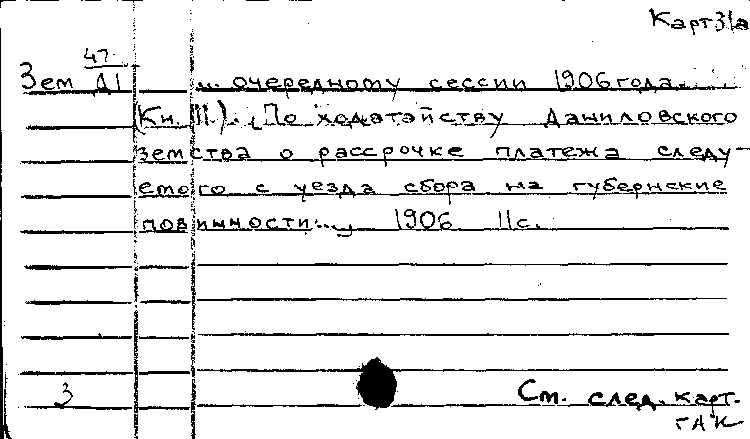 Карт 31а
47
Зем Д1 ... очередному сессии 1906 года.....
(Кн. III). По ходатайству Даниловского
земства о рассрочке платежа следу-
емого с уезда сбора на губернские
повинности..., 1906 11с.
3 См. след. карт.
ГАК